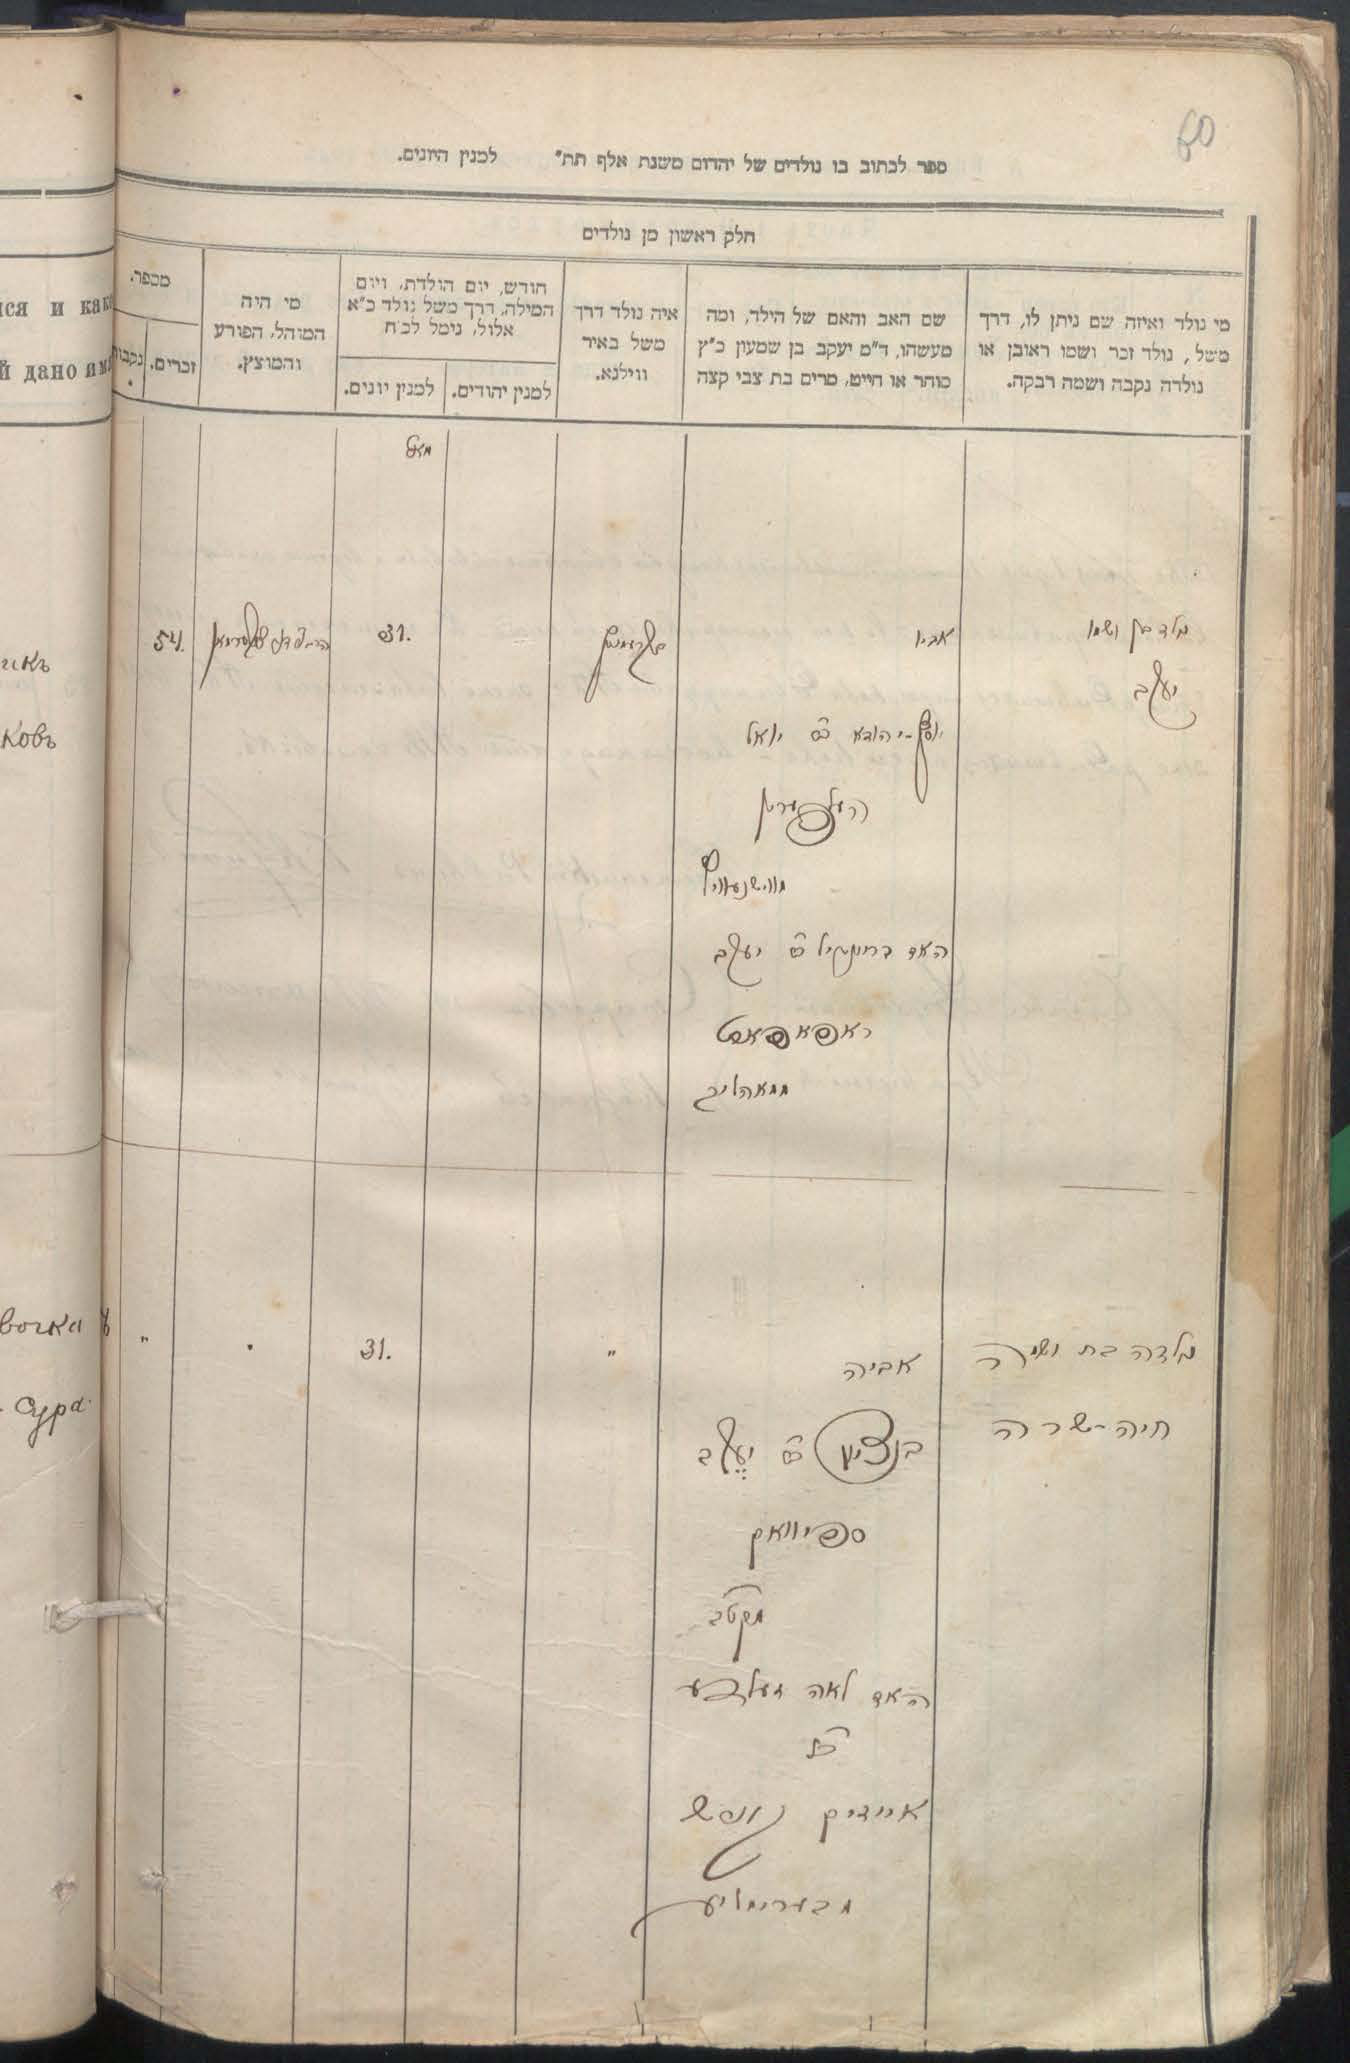 60
ספר לכתוב בו נולדים של יהדום משנת אלף תת" למנין היונים.
חלק ראשון מן נולדים
מי נולד ואיזה שם ניתן לו, דרך
משל, נולד זכר ושמו ראובן או
נולדה נקבה ושמה רבקה.
שם האב והאם של הילד, ומה
מעשהו, ד"מ יעקב בן שמעון כ"ץ
סוחר או חייט, מרים בת צבי קצה
איה נולד דרך
משל באיר
ווילנא.
חודש, יום הולדת, ויום
המילה, דרך משל נולד כ"א
אלול, נימל לכ"ח
למנין יהודים.
למנין יונים.
מי היה
המוהל, הפורע
והמוצץ.
מספר.
זכרים.
נקבות
מאי
נולד בן ושמו
יעקב
אביו
יוסף-יהודא ב"ר יואל
האלפערין
מווישנעוויץ
האם ב"ר יעקב
ראפאפארט
ממאהליב
קרעמניץ
31.
54.
נולדה בת ושמה
חיה-שרה
אביה
בנציון ב"ר יעקב
ספיוואק
האם לאה
ב"ר
אייזיק
"
31.
"
лся и как
й дано имя
икъ
ковъ
вочка
Сура